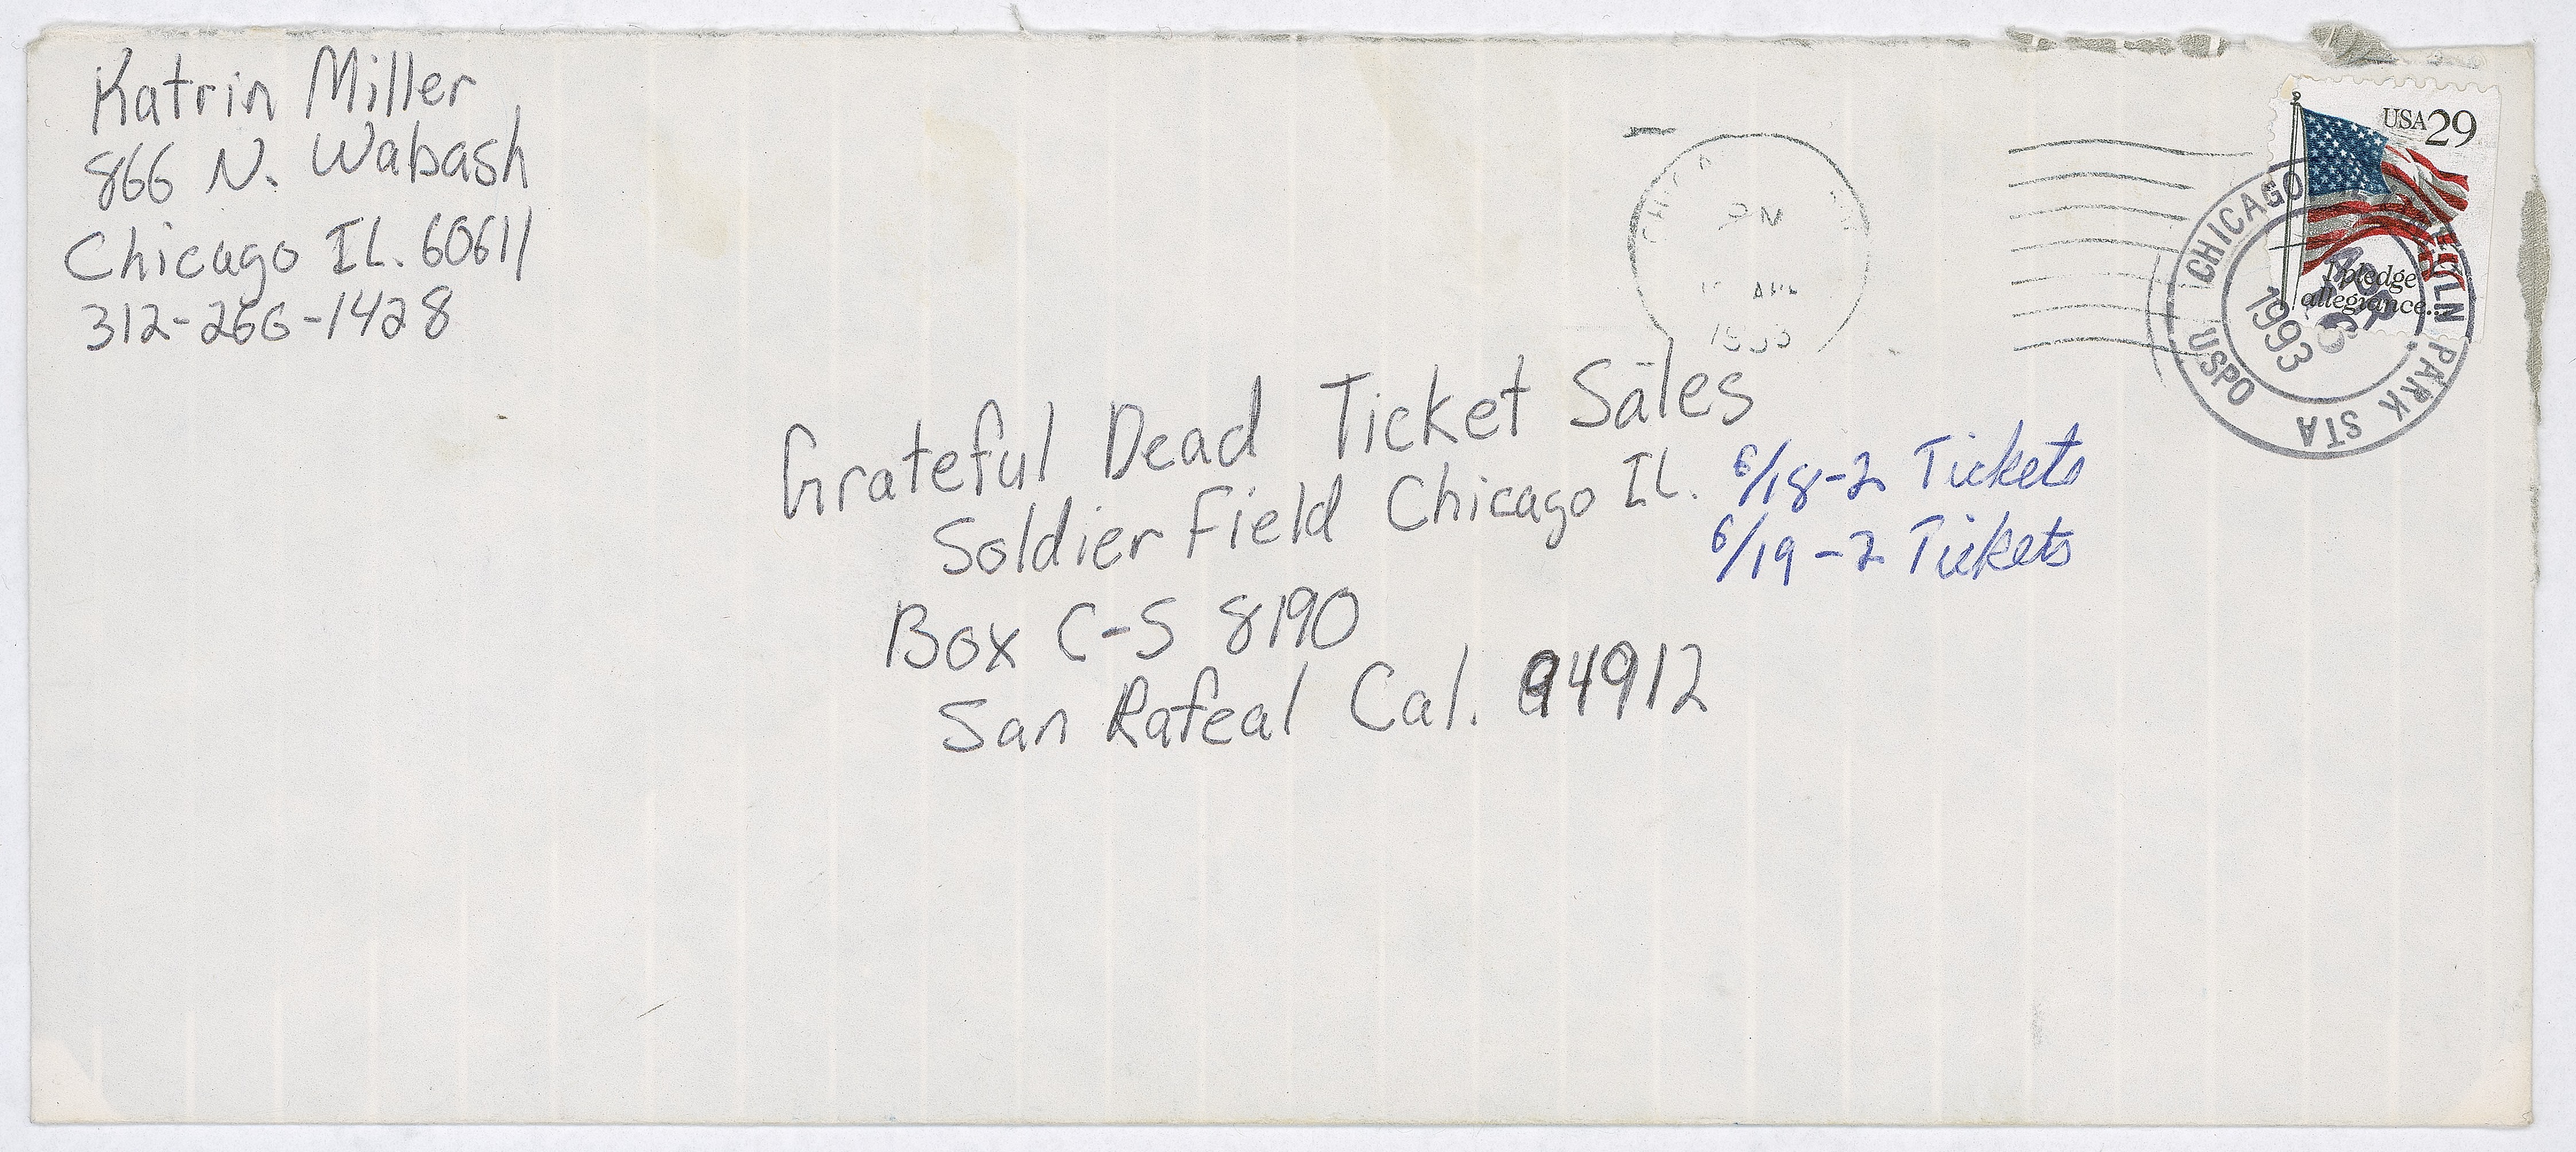 Katrin Miller
866 N. Wabash
Chicago IL. 60611
312-266-1428
PM
USA 29
I pledge
allegiance...
CHICAGO
PARK STA
USPO
APR
1993
Grateful Dead Ticket Sales
Soldier Field Chicago IL. 6/18-2 Tickets
6/19-2 Tickets
Box C-S 8190
San Rafeal Cal. 94912